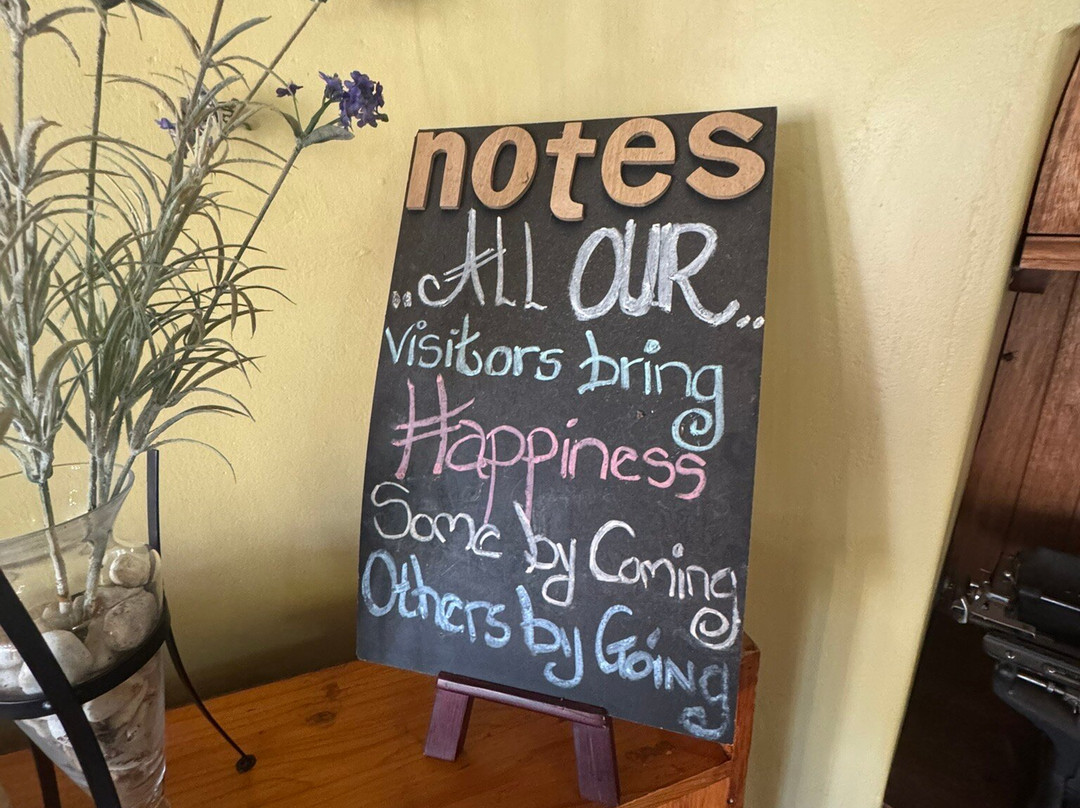 notes
..ALL OUR..
Visitors bring
Happiness
Some by Coming
Others by Going